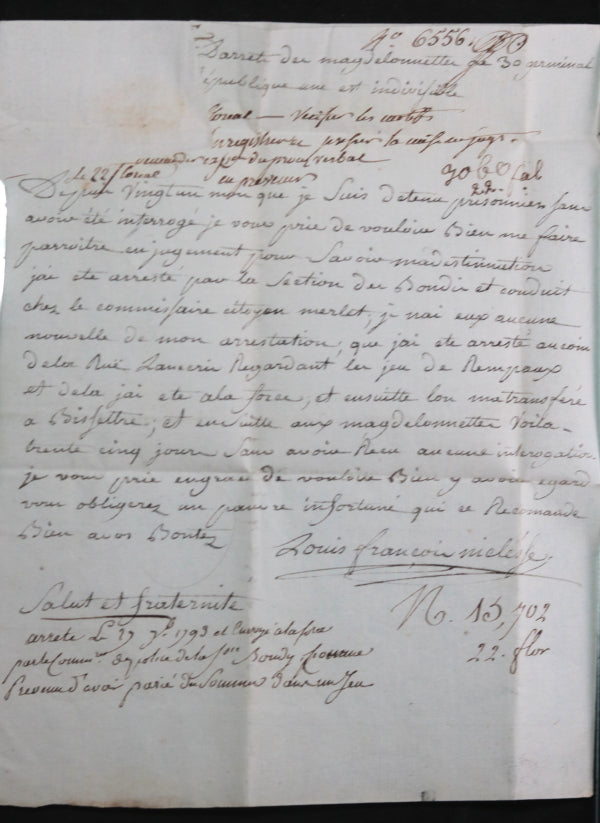 4º 6556.
Darrete des magdelonnettes ce 30 germinal
république une et indivisible
floreal — Verifier les motifs
enregistrer et presser la mise en juge.
demander cop. du procès verbal
le 22 floreal
en presseur
3060 fal
Depuis Vingt un mois que je Suis detenu prisonnier sans
avoir été interrogé je vous prie de vouloire Bien me faire
parroître en jugement pour Savoir madestinution
jai ete arresté par la Section des Bondis et conduit
chez le commissaire citoyen merlet; je nai eux aucune
nouvelle de mon arrestation, que jai ete arresté aucoin
dela Ruë Lancrin Regardant les jeu de Rempaux
et dela jai ete ala force, et ensuitte lon ma transféré
a Bissettre; et ensuitte aux magdelonnettes Voila
trente cinq jours Sans avoir Recu aucune interogation
je vous prie engrace de vouloire Bien y avoir egard
vous obligerez un pauvre infortuné qui ce Recomande
Bien avos Bontez
Louis françois
Salut et fraternité
N. 15,702
22. flor
arrete Le 27 7.bre 1793 et Envoyé ala force
par le Comm.re de police de la S.on Bondy
Prevenu d'avoir parié des Sommes dans un Jeu